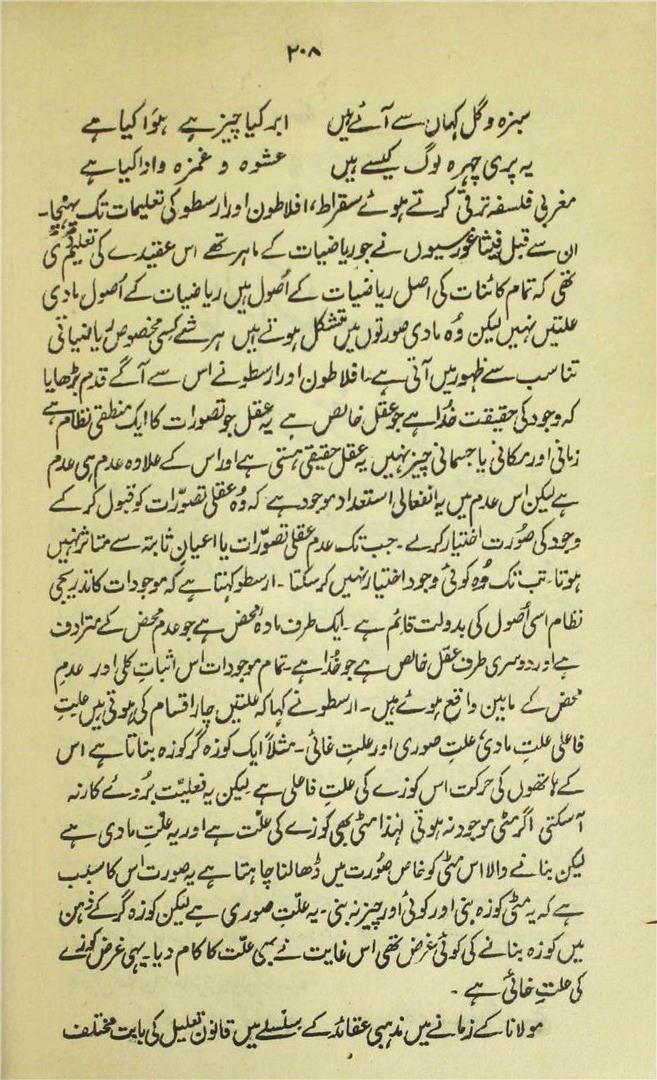 ۲۰۸
سبزہ و گل کہاں سے آئے ہیں ابر کیا چیز ہے ہوَا کیا ہے
یہ پری چہرہ لوگ کیسے ہیں عشوہ و غمزہ و ادا کیا ہے
مغربی فلسفہ ترقی کرتے ہوئے سقراط، افلاطون اور ارسطو کی تعلیمات تک پہنچا۔
ان سے قبل فیثاغورسیوں نے جو ریاضیات کے ماہر تھے اس عقیدے کی تعلیم دی
تھی کہ تمام کائنات کی اصل ریاضیات کے اُصول ہیں ریاضیات کے اُصول مادی
علتیں نہیں لیکن وُہ مادی صورتوں میں متشکل ہوتے ہیں ہر شے کسی مخصوص ریاضیاتی
تناسب سے ظہور میں آتی ہے۔ افلاطون اور ارسطو نے اس سے آگے قدم بڑھایا
کہ وجود کی حقیقت خُدا ہے جو عقل خالص ہے یہ عقل جو تصورات کا ایک منطقی نظام ہے
زمانی اور مکانی یا جسمانی چیز نہیں یہ عقل حقیقی ہستی ہے اور اس کے علاوہ عدم ہی عدم
ہے لیکن اس عدم میں یہ انفعالی استعداد موجود ہے کہ وُہ عقلی تصوّرات کو قبول کر کے
وجود کی صُورت اختیار کرلے۔ جب تک عدم عقلی تصوّرات یا اعیانِ ثابتہ سے متاثر نہیں
ہوتا۔ تب تک وُہ کوئی وجود اختیار نہیں کر سکتا۔ ارسطو کہتا ہے کہ موجودات کا تدریجی
نظام اسی اُصول کی بدولت قائم ہے۔ ایک طرف مادہ محض ہے جو عدم محض کے مترادف
ہے اور دوسری طرف عقل خالص ہے جو خُدا ہے۔ تمام موجودات اس اثباتِ کلی اور عدم
محض کے مابین واقع ہوئے ہیں۔ ارسطو نے کہا کہ علتیں چار اقسام کی ہوتی ہیں علتِ
فاعلی علتِ مادی علتِ صوری اور علتِ غائی۔ مثلاً ایک کوزہ گر کوزہ بناتا ہے اس
کے ہاتھوں کی حرکت اس کوزے کی علتِ فاعلی ہے لیکن یہ فعلیّت بُروئے کار نہ
آسکتی اگر مٹی موجود نہ ہوتی لہٰذا مٹی بھی کوزے کی علّت ہے اور یہ علّتِ مادی ہے
لیکن بنانے والا اس مٹی کو خاص صُورت میں ڈھالنا چاہتا ہے یہ صورت اس کا سبب
ہے کہ یہ مٹی کوزہ بنی اور کوئی اور چیز نہ بنی۔ یہ علّتِ صوری ہے لیکن کوزہ گر کے ذہن
میں کوزہ بنانے کی کوئی غرض تھی اس غایت نے بھی علّت کا کام دیا۔ یہی غرض کوزے
کی علتِ غائی ہے۔
مولانا کے زمانے میں مذہبی عقائد کے سلسلے میں قانونِ تعلیل کی بابت مختلف